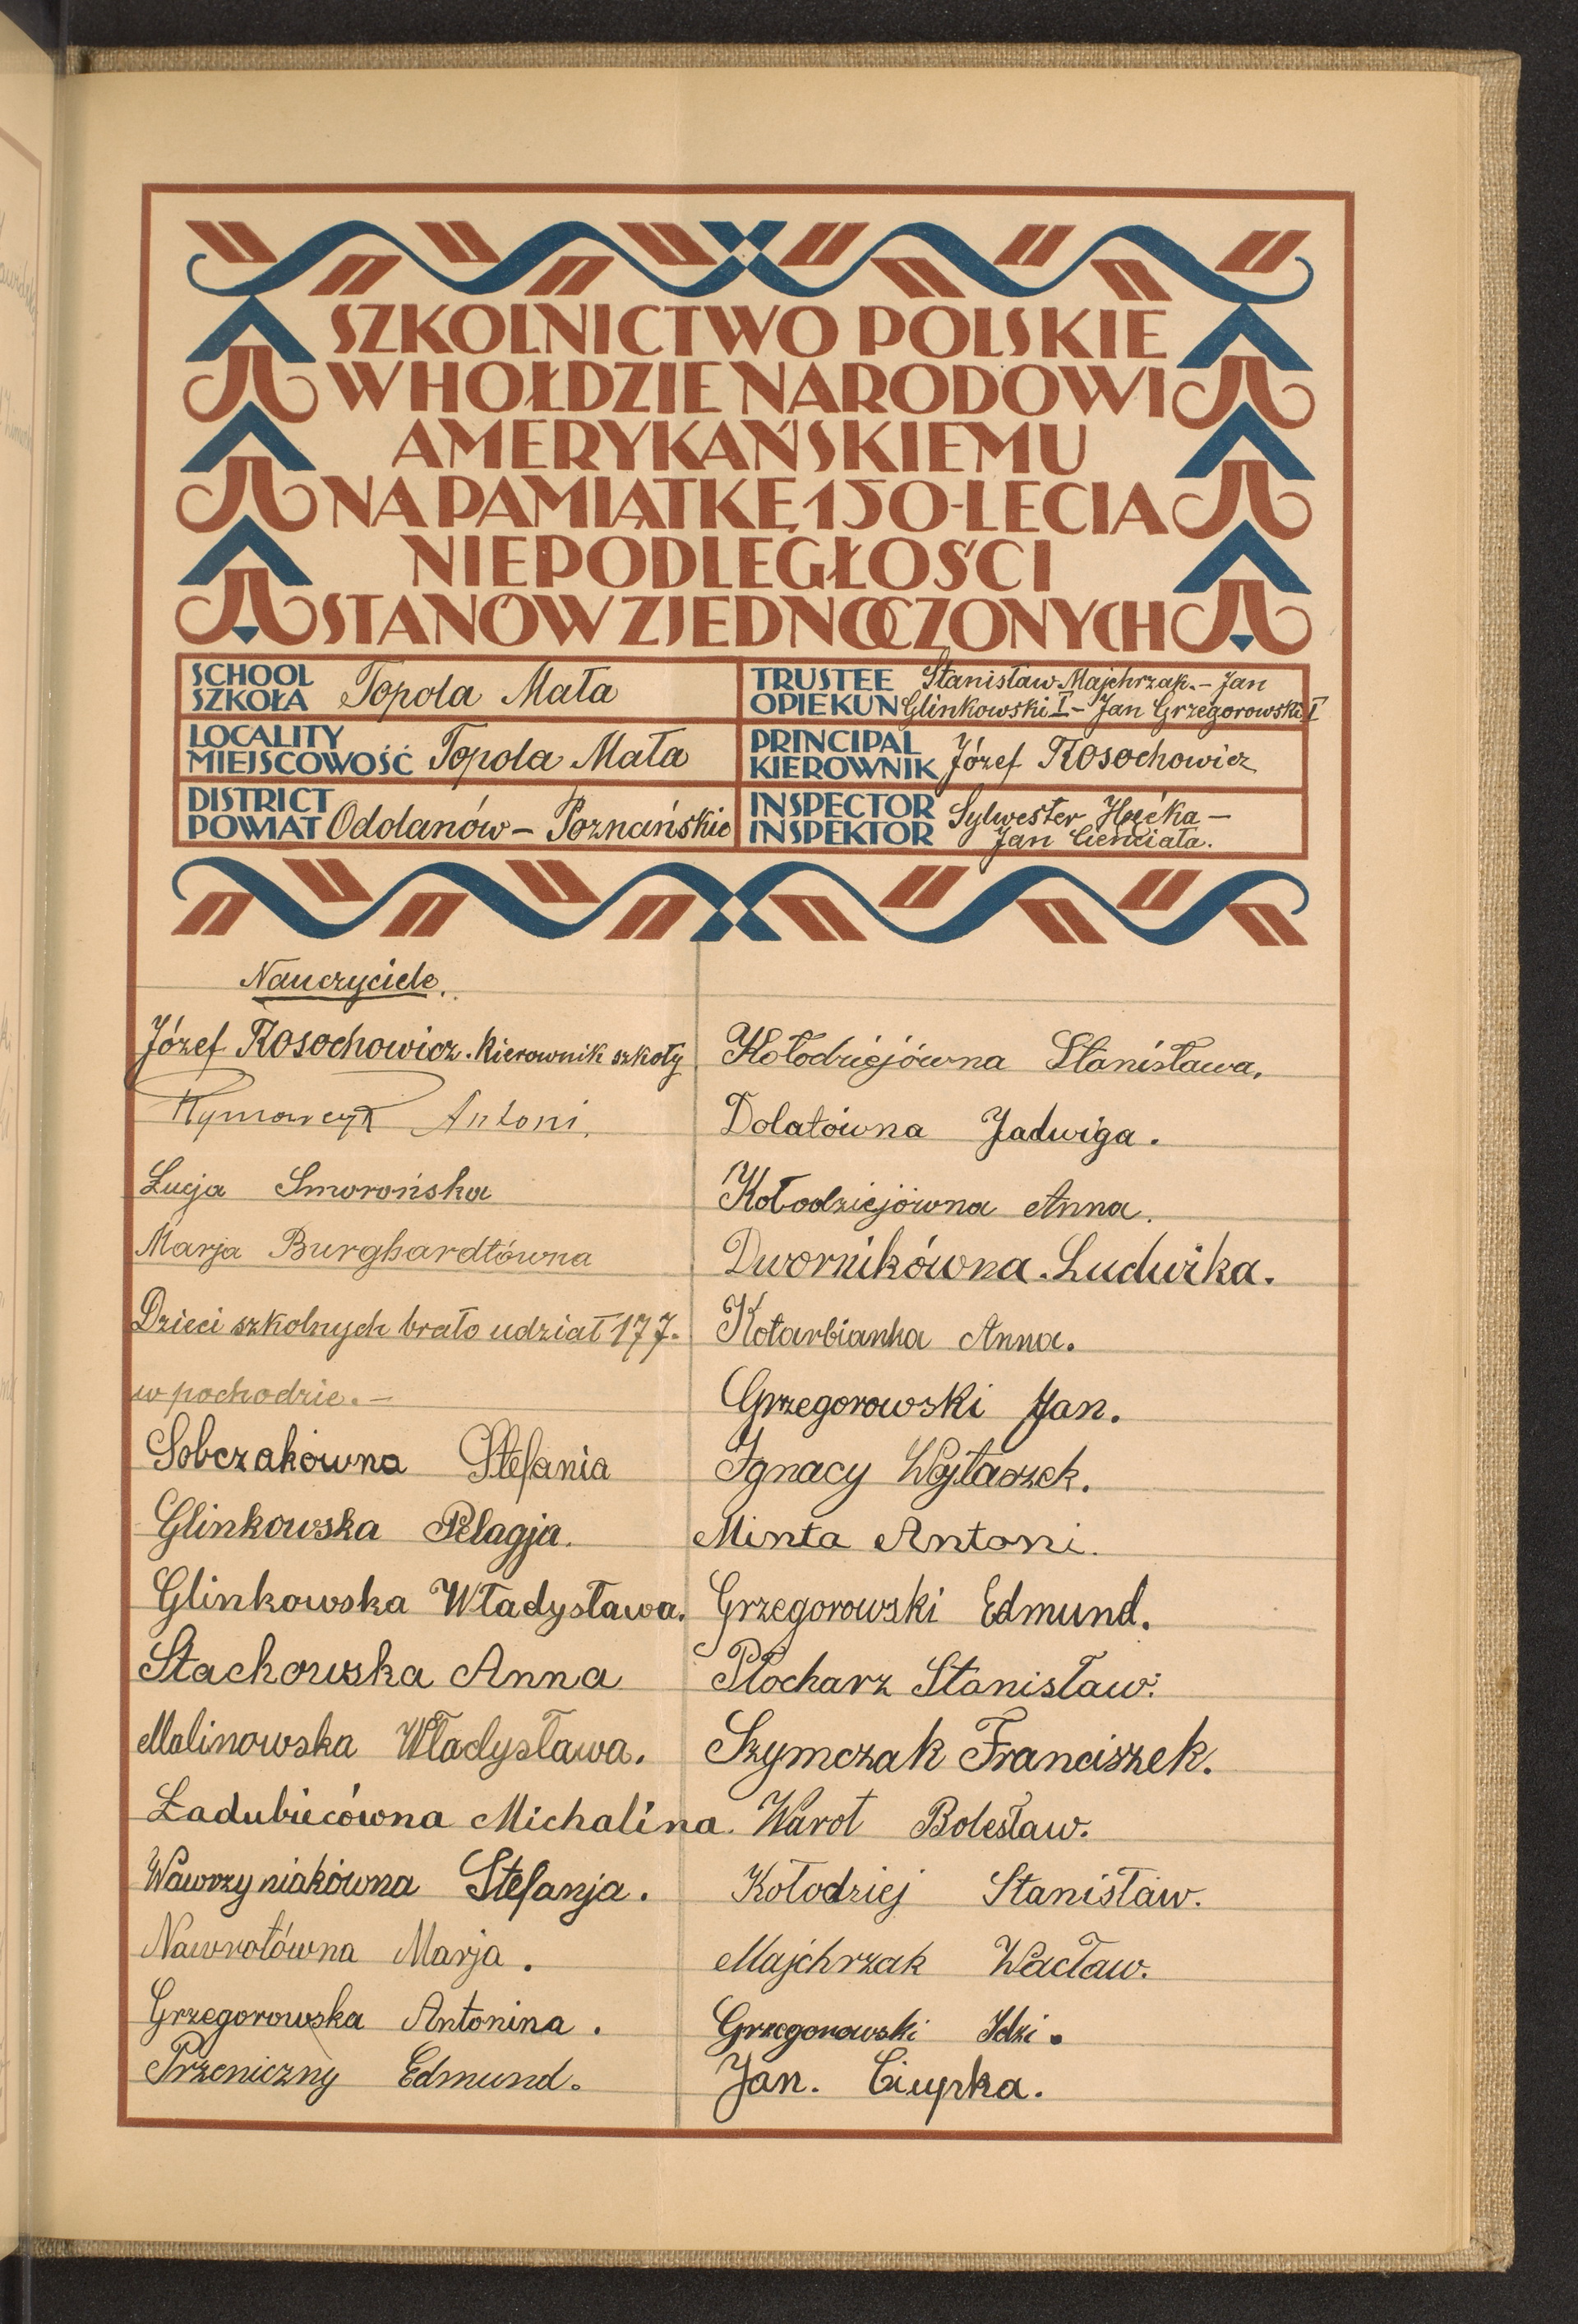 SZKOLNICTWO POLSKIE
W HOŁDZIE NARODOWI
AMERYKAŃSKIEMU
NA PAMIĄTKĘ 150-LECIA
NIEPODLEGŁOŚCI
STANÓW ZJEDNOCZONYCH
SCHOOL
SZKOŁA Topola Mała
TRUSTEE Stanisław Majchrzak. - Jan
OPIEKUN Glinkowski I - Jan Grzegorowski I
LOCALITY
MIEJSCOWOŚĆ Topola Mała
PRINCIPAL
KIEROWNIK Józef Rosochowicz
DISTRICT
POWIAT Odolanów - Poznańskie
INSPECTOR Sylwester -
INSPEKTOR Jan Cienciała.
Nauczyciele.
Józef Rosochowicz. Kierownik szkoły
Rymarczyk Antoni.
Łucja Smorońska
Marja Burghardtówna
Dzieci szkolnych brało udział 177.
w pochodzie. -
Sobczakówna Stefania
Glinkowska Pelagja.
Glinkowska Władysława.
Stachowska Anna
Malinowska Władysława.
Ładubiecówna Michalina.
Wawrzyniakówna Stefanja.
Nawrotówna Marja.
Grzegorowska Antonina.
Przeniczny Edmund.
Kołodziejówna Stanisława.
Dolatówna Jadwiga.
Kołodziejówna Anna.
Dwornikówna Ludwika.
Kotarbianka Anna.
Grzegorowski Jan.
Ignacy Wojtaszek.
Minta Antoni.
Grzegorowski Edmund.
Płocharz Stanisław.
Szymczak Franciszek.
Warot Bolesław.
Kołodziej Stanisław.
Majchrzak Wacław.
Grzegorowski Idzi.
Jan. Ciupka.